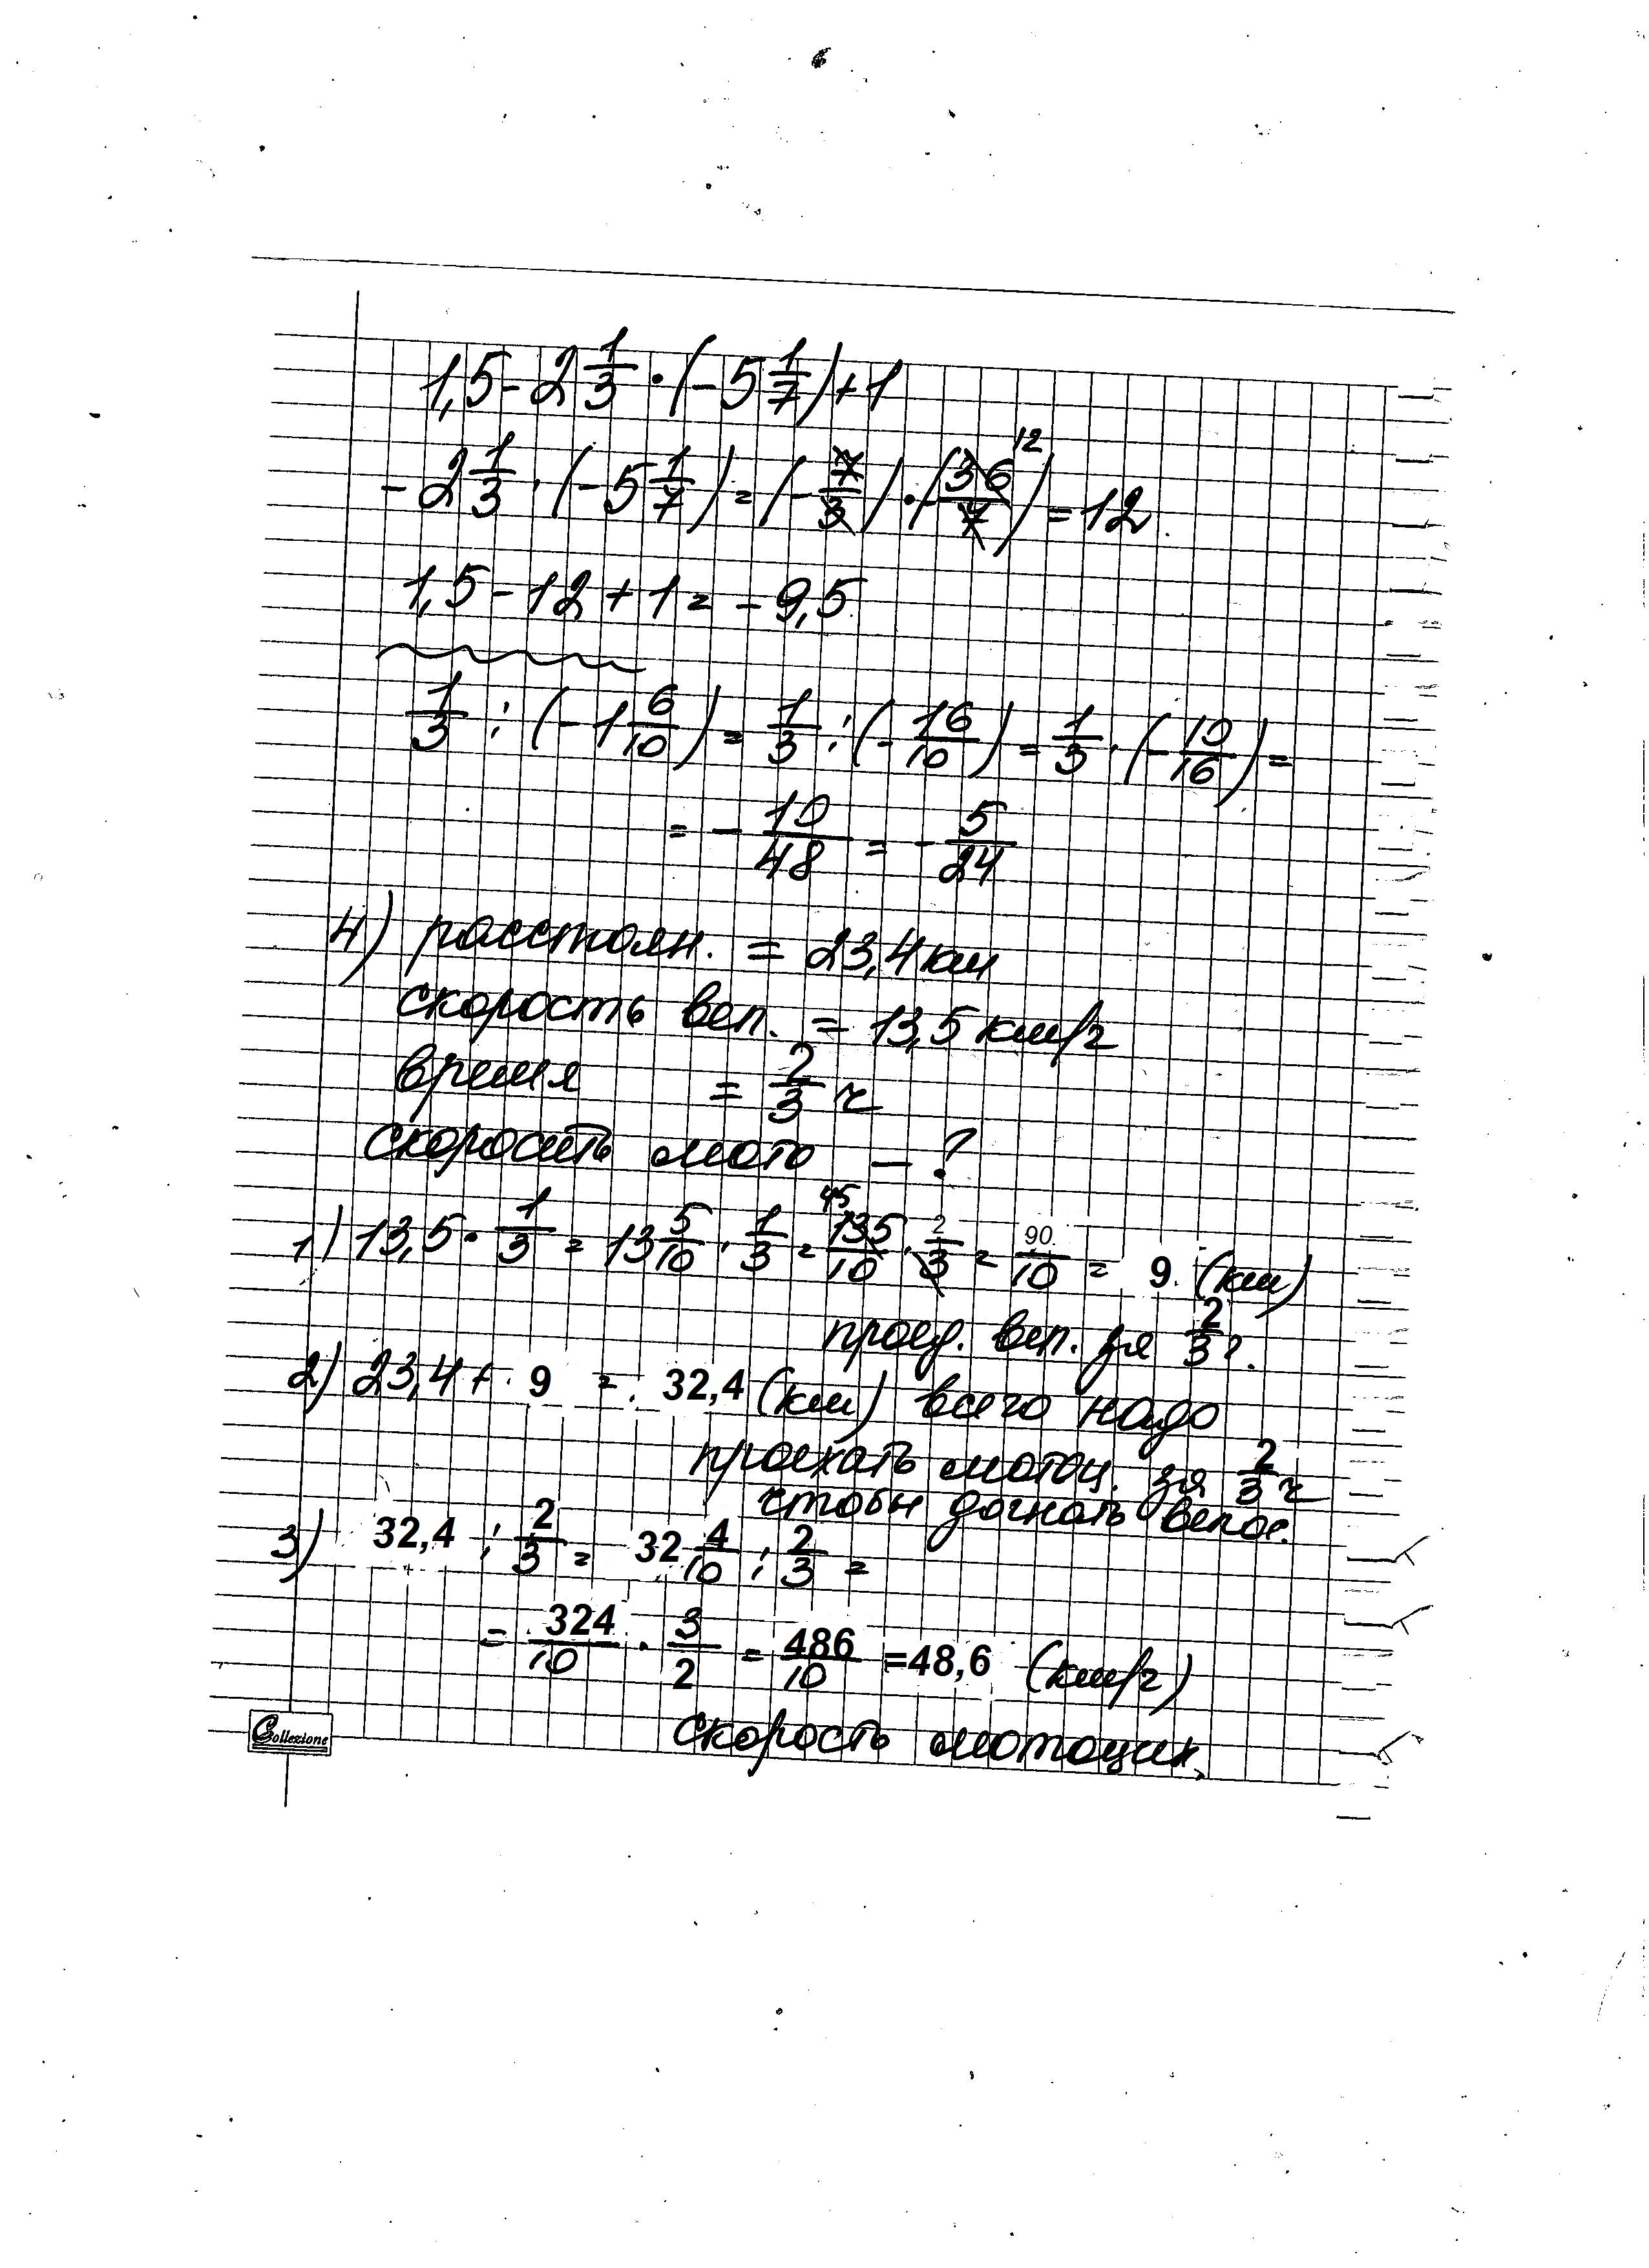 1,5 - 2 1/3 · (- 5 1/7) + 1
- 2 1/3 · (- 5 1/7) = (- 7/3) · (- 36/7) 12 = 12.
1,5 - 12 + 1 = - 9,5
1/3 : (- 1 6/10) = 1/3 : (- 16/10) = 1/3 · (- 10/16) =
= - 10/48 = - 5/24
4) расстоян. = 23,4 км
скорость вел. = 13,5 км/ч
время = 2/3 ч
скорость мото — ?
1) 13,5 · 1/3 = 13 5/10 · 1/3 = 45 135/10 · 2/3 = 90/10 = 9 (км)
проед. вел. за 2/3 ч.
2) 23,4 + 9 = 32,4 (км) всего надо
проехать мотоц. за 2/3 ч
чтобы догнать велос.
3) 32,4 : 2/3 = 32 4/10 : 2/3 =
= 324/10 · 3/2 = 486/10 =48,6 (км/ч)
скорость мотоцикл.
Collezione